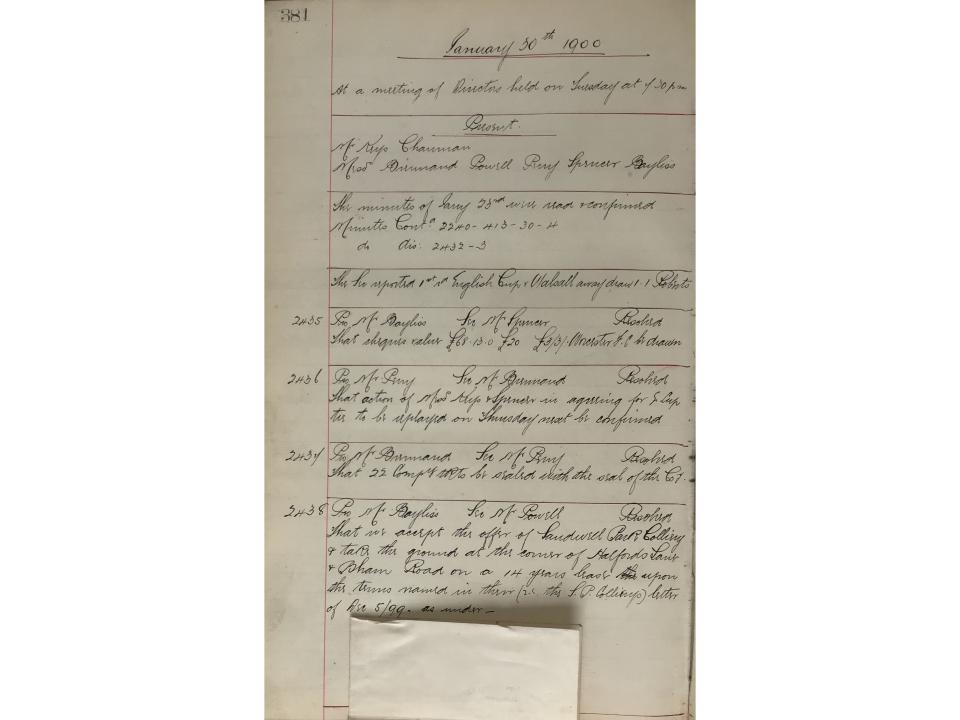 381
January 30th 1900
At a meeting of Directors held on Tuesday at 7 30 pm
Present.
Mr Keys Chairman
Messrs Brennand Powell Perry Spencer Bayliss
The minutes of Jany 23rd were read & confirmed
Minutes Contd 2240-413-30-4
do dis: 2432-3
The Sec reported 1st rd English Cup v Walsall away draw 1-1 Roberts
2435 Pro Mr Bayliss Sec Mr Spencer Resolved
That cheques value £68.13.0 £20 £3/3/- Worcester F.C be drawn
2436 Pro Mr Perry Sec Mr Brennand Resolved
That action of Messrs Keys & Spencer in agreeing for E Cup
tie to be replayed on Thursday next be confirmed
2437 Pro Mr Brennand Sec Mr Perry Resolved
That 22 Compy tkts be sealed with the seal of the Co.
2438 Pro Mr Bayliss Sec Mr Powell Resolved
That we accept the offer of Sandwell Park Colliery
& take the ground at the corner of Halfords Lane
& Bham Road on a 14 years lease upon
the terms named in their (i.e. the S.P. Collierys) letter
of Dec 5/99. as under -